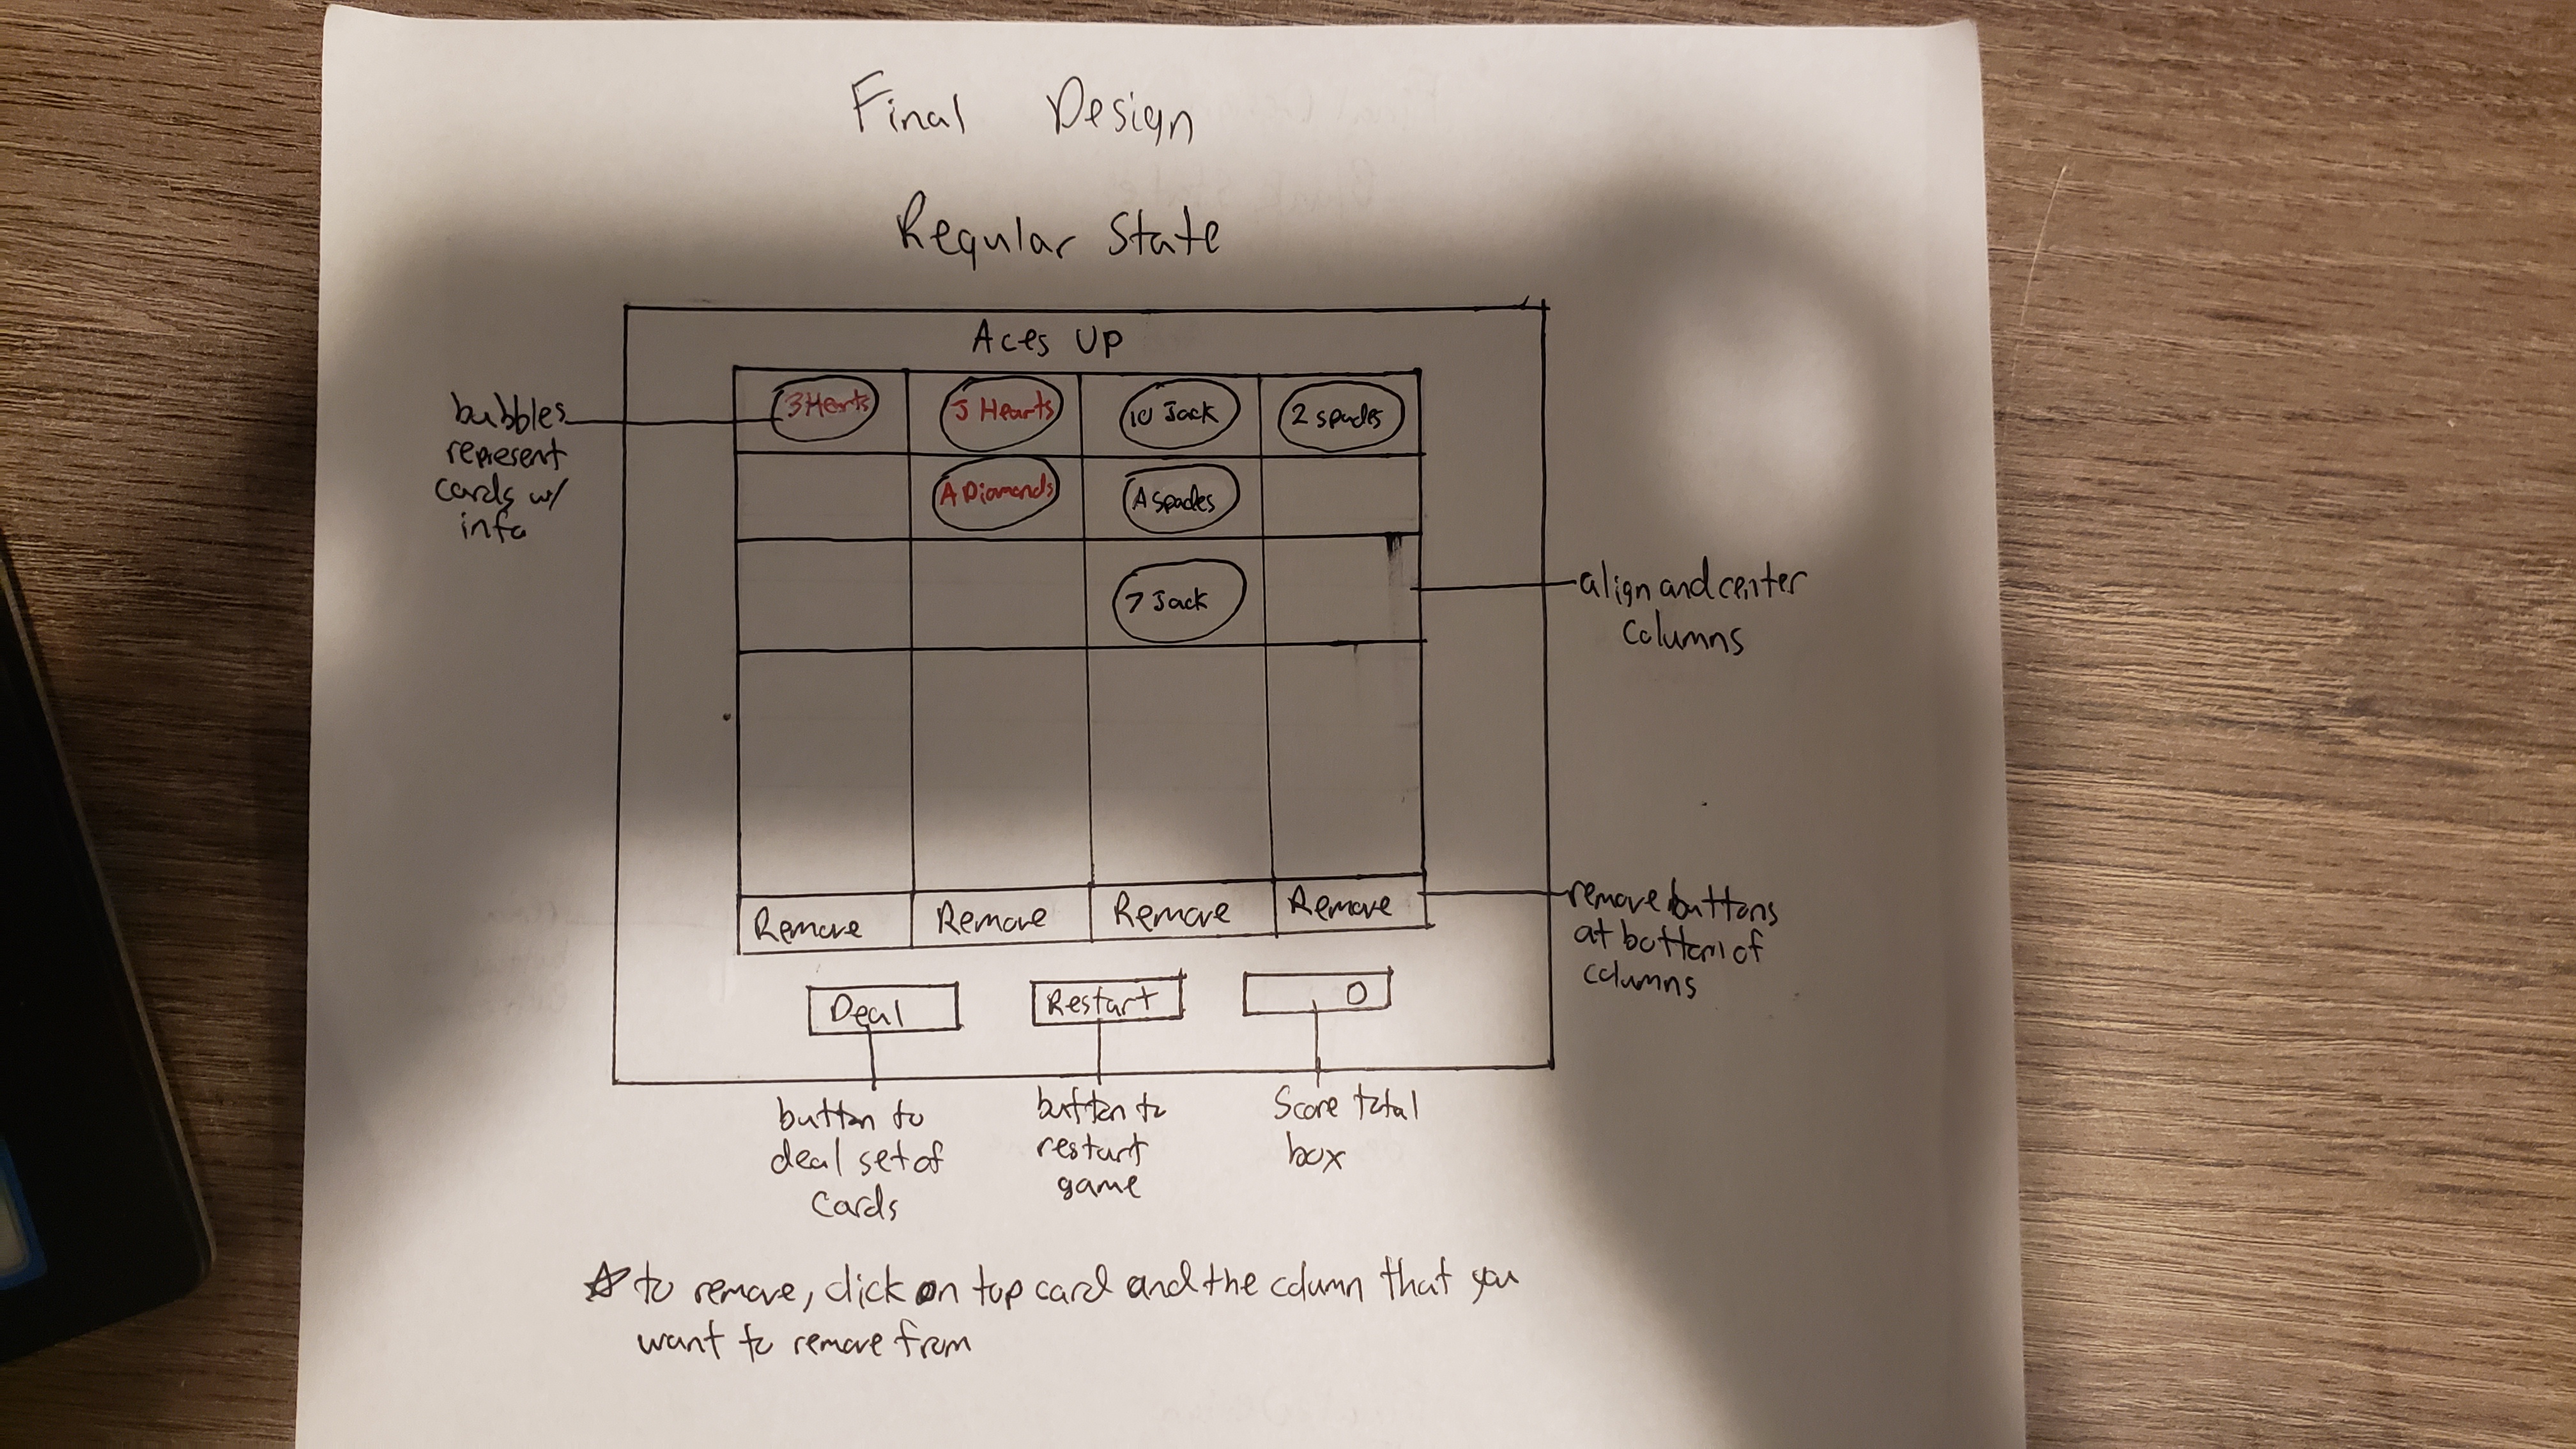 Final Design
Regular State
Aces Up
bubbles
represent
cards w/
info
3 Hearts
5 Hearts
10 Jack
2 spades
A Diamonds
A spades
7 Jack
align and center
columns
Remove
Remove
Remove
Remove
remove buttons
at bottom of
columns
Deal
Restart
0
button to
deal set of
cards
button to
restart
game
Score total
box
☆ to remove, click on top card and the column that you
want to remove from